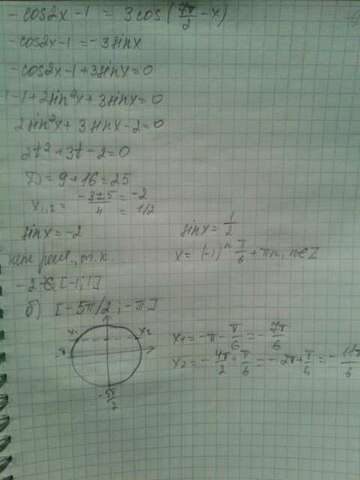 -cos2x-1 = 3cos(7π/2 - x)
-cos2x-1 = -3sinx
-cos2x-1+3sinx=0
-1+2sin²x+3sinx=0
2sin²x+3sinx-2=0
2t²+3t-2=0
D=9+16=25
x₁,₂ = (-3±5)/4 = -2
= 1/2
sinx=-2 sinx=1/2
реш., т.к x=(-1)ⁿ π/6 + πn, n∈Z
-2∉[-1;1]
б) [-5π/2; -π]
x₁ x₂
x₁=-π-π/6=-7π/6
x₂=-4π/2+π/6=-2π+π/6=-11π/6
-5π/2